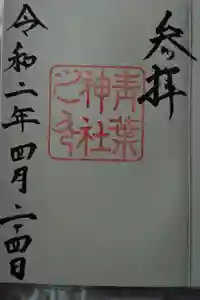 参拝
青葉
神社
之印
令和二年四月二四日